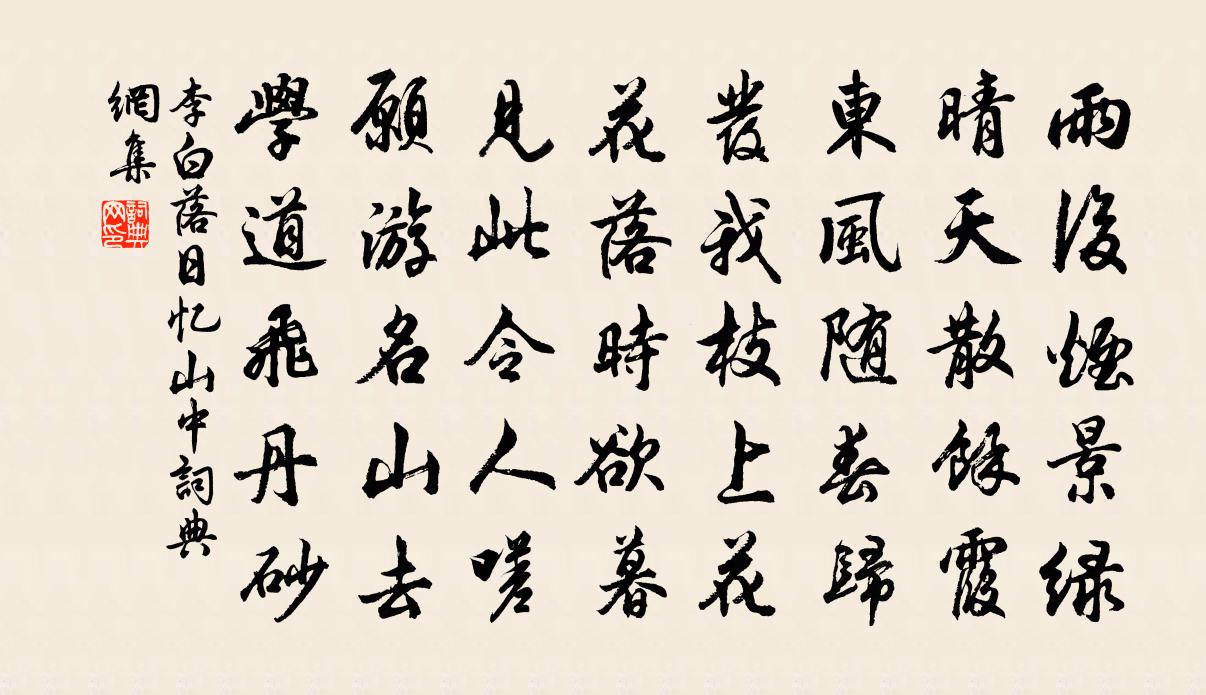 雨後煙景綠
晴天散餘霞
東風随春歸
發我枝上花
花落時欲暮
見此令人嗟
願游名山去
學道飛丹砂
李白落日忆山中詞典
網集
詞典网印